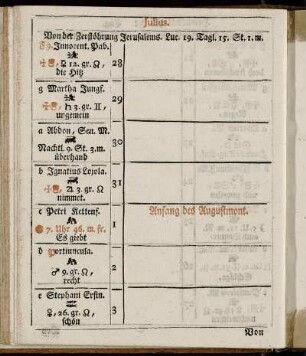 Julius.
Von der Zerstöhrung Jerusalems. Luc. 19. Tagl. 15. St. 1. m.
Innocent. Pab.
♀ 12. gr. ♌,
die Hitz
28
g Martha Jungf.
♄ 3. gr. ♊,
ungemein
29
a Abdon, Sen. M.
Nachtl. 9. St. 3. m.
überhand
30
b Ignatius Lojola.
3. gr. ♌
nimmet.
31
c Petri Kettenf.
7. Uhr 46. m. fr.
Es giebt
1
Anfang des Augustmont.
d Portiuncula.
♂ 9. gr. ♌,
recht
2
e Stephani Erfin.
♀, 26. gr. ♌,
schön
3
Von